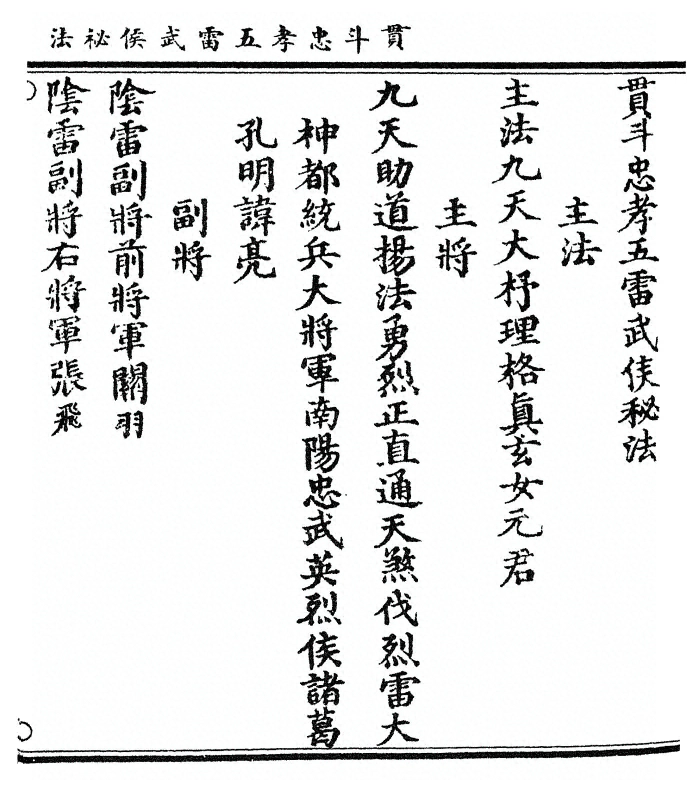 貫斗忠孝五雷武侯祕法
貫斗忠孝五雷武侯秘法
主法
主法九天大杼理格眞玄女元君
主將
九天助道揚法勇烈正直通天煞伐烈雷大
神都統兵大將軍南陽忠武英烈侯諸葛
孔明諱亮
副將
陰雷副將前將軍關羽
陰雷副將右將軍張飛